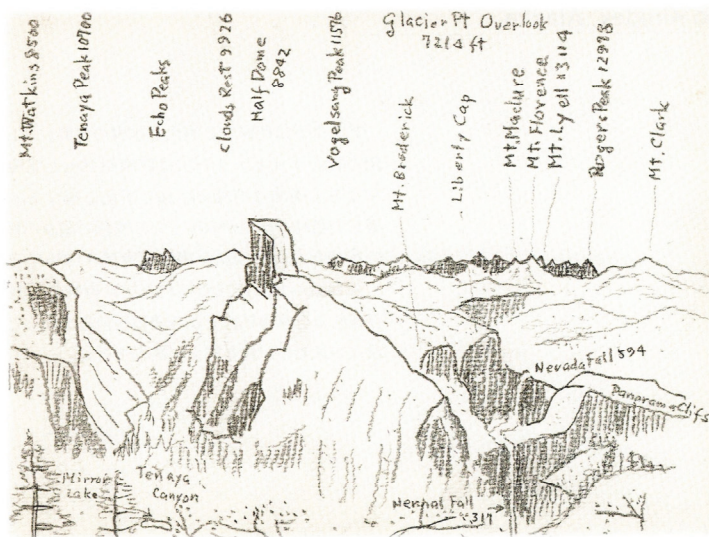 Mt. Watkins 8500
Tenaya Peak 10700
Echo Peaks
Clouds Rest 9926
Half Dome
8842
Vogelsang Peak 11516
Glacier Pt Overlook
7214 ft
Mt. Broderick
Liberty Cap
Mt. Maclure
Mt. Florence
Mt. Lyell 13114
Rogers Peak 12978
Mt. Clark
Nevada Fall 594
Panorama Cliffs
Mirror
Lake
Tenaya
Canyon
Nernal Fall
317